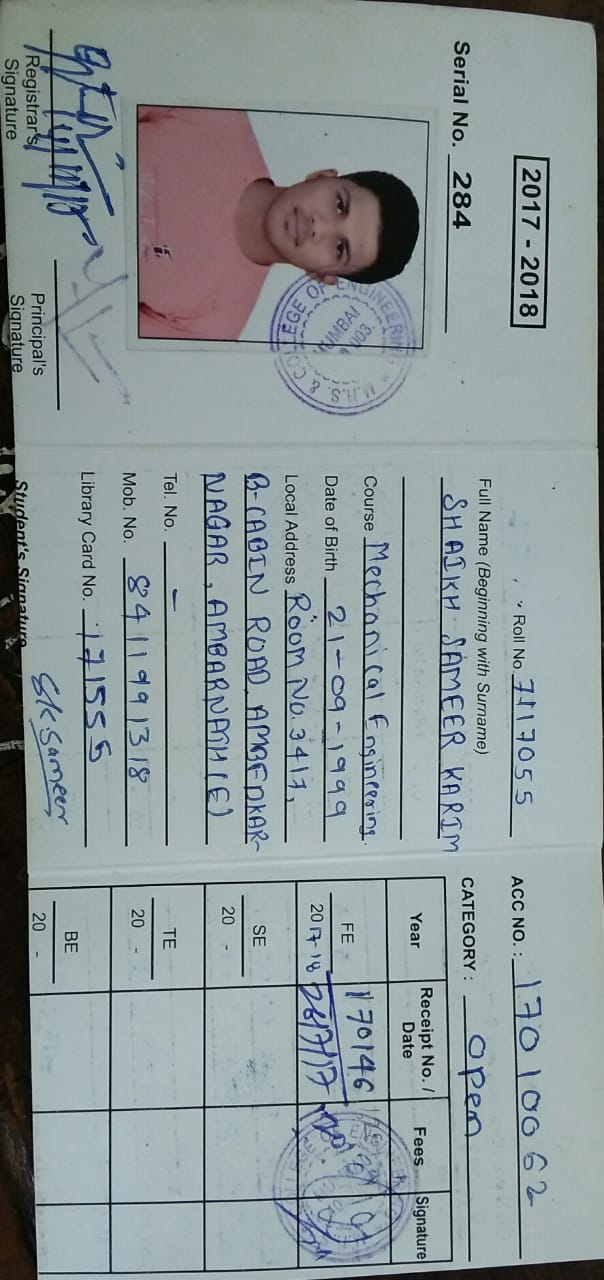 2017 - 2018
Serial No. 284
COLLEGE OF ENGINEERING
MUMBAI
Registrar's
Signature
Principal's
Signature
Roll No. 7117055
Full Name (Beginning with Surname)
SHAIKH SAMEER KARIM
Course Mechanical Engineering.
Date of Birth 21-09-1999
Local Address Room No. 3417,
B-CABIN ROAD, AMBEDKAR-
NAGAR, AMBARNATH(E)
Tel. No. -
Mob. No. 8411991318
Library Card No. 171555
Student's Signature Sksameer
ACC NO. : 17010062
CATEGORY : open
Year Receipt No. / Date Fees Signature
FE 1170146
2017-18 26/7/17
SE
20 -
TE
20 -
BE
20 -